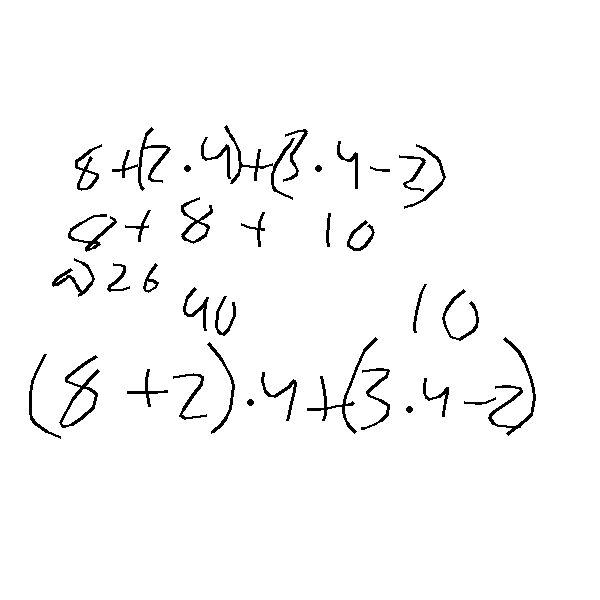 8+(2·4)+(3·4-2)
8+8+10
a) 26
40 10
(8+2)·4+(3·4-2)